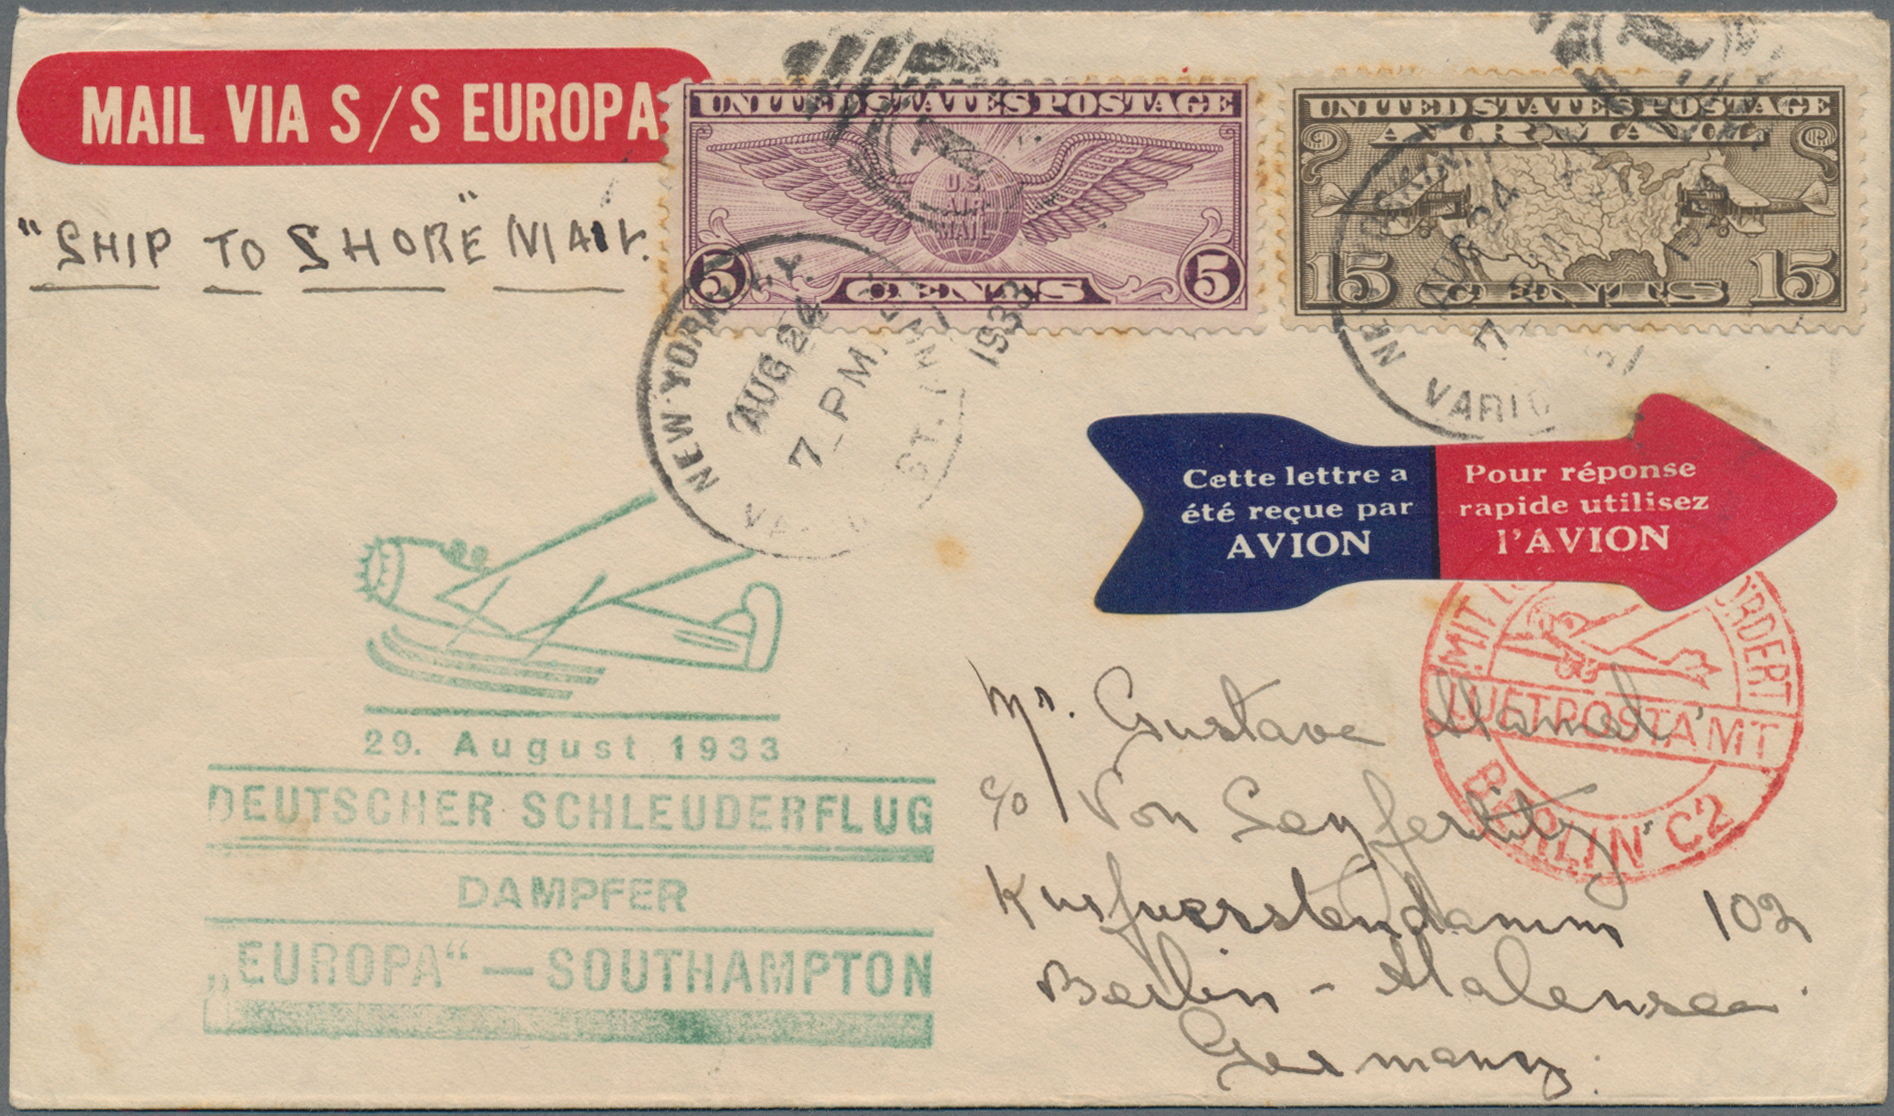 MAIL VIA S/S EUROPA
"SHIP TO SHORE" MAIL.
UNITED STATES POSTAGE
U.S.
AIR
MAIL
5 5
CENTS
UNITED STATES POSTAGE
AIR MAIL
15 15
CENTS
NEW YORK, N.Y.
AUG 24
7 PM
1933
ST. ANN
NEW YORK, N.Y.
AUG 24
7
Cette lettre a
été reçue par
AVION
Pour réponse
rapide utilisez
l'AVION
29. August 1933
DEUTSCHER SCHLEUDERFLUG
DAMPFER
„EUROPA“ — SOUTHAMPTON
MIT
LUFTPOSTAMT
BERLIN C2
Mr. Gustave Hamel
c/o Von Seyfertitz
Kurfuerstendamm 102
Berlin - Halensee.
Germany.